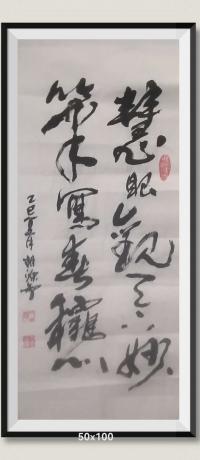 慧眼觀天下妙
筆寫春龝
乙巳夏月
50x100